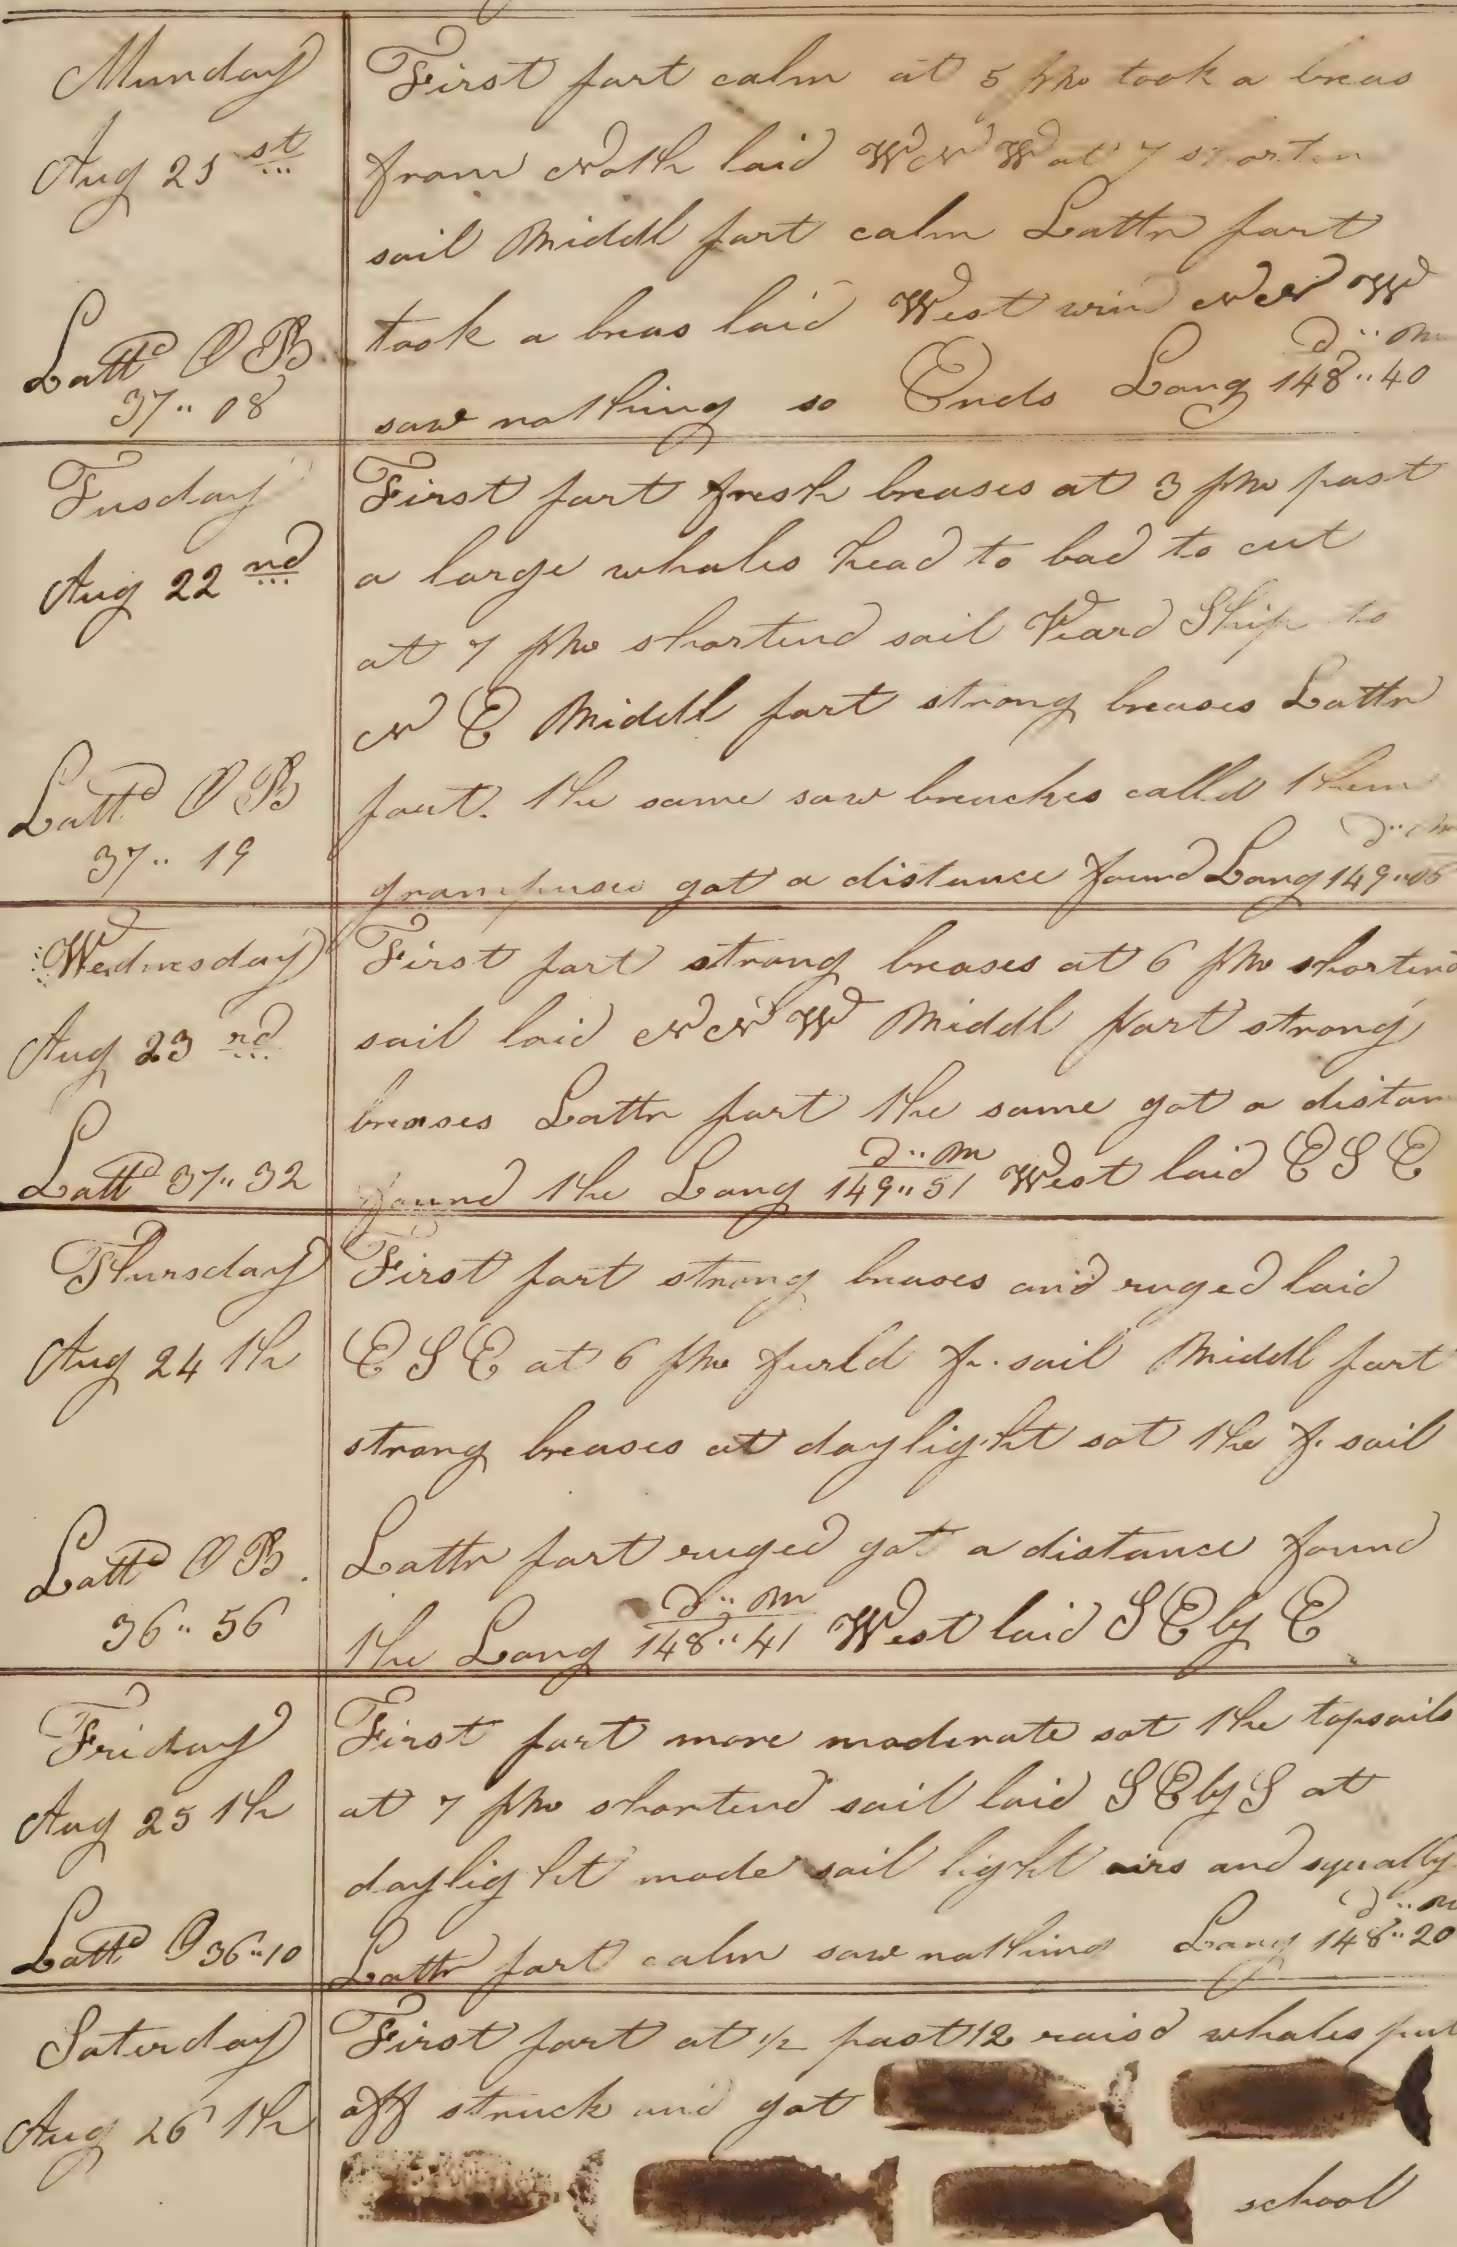 Munday
Aug 21 st
Lattd O B
37.. 08
First part calm at 5 pm took a breas
from North laid W N W at 7 shorten
sail Middl part calm Lattr part
took a breas laid West wind N N W
saw nothing so Ends Long 148..40
d.. m
Tusday
Aug 22 nd
Lattd O B
37.. 19
First part fresh breases at 3 pm past
a large whales head to bad to cut
at 7 pm shortend sail Veard Ship to
N E Middl part strong breases Lattr
part. the same saw breaches calld them
d.. m
grampuses got a distance found Long 149..06
Wednesday
Aug 23 rd
Lattd 37.. 32
First part strong breases at 6 pm shortend
sail laid N N W Middl part strong
breases Lattr part the same got a distan
d.. m
found the Long 149.. 51 West laid E S E
Thursday
Aug 24 th
Lattd O B
36.. 56
First part strong breases and ruged laid
E S E at 6 pm furld f. sail Middl part
strong breases at daylight sot the f. sail
Lattr part ruged got a distance found
d.. m
the Long 148.. 41 West laid S E by E
Friday
Aug 25 th
Lattd O 36..10
First part more moderate sot the topsails
at 7 pm shortend sail laid S E by S at
daylight made sail light airs and squally
d.. m
Lattr part calm saw nothing Long 148.. 20
Saterday
Aug 26 th
First part at 1/2 past 12 raisd whales put
off struck and got
school